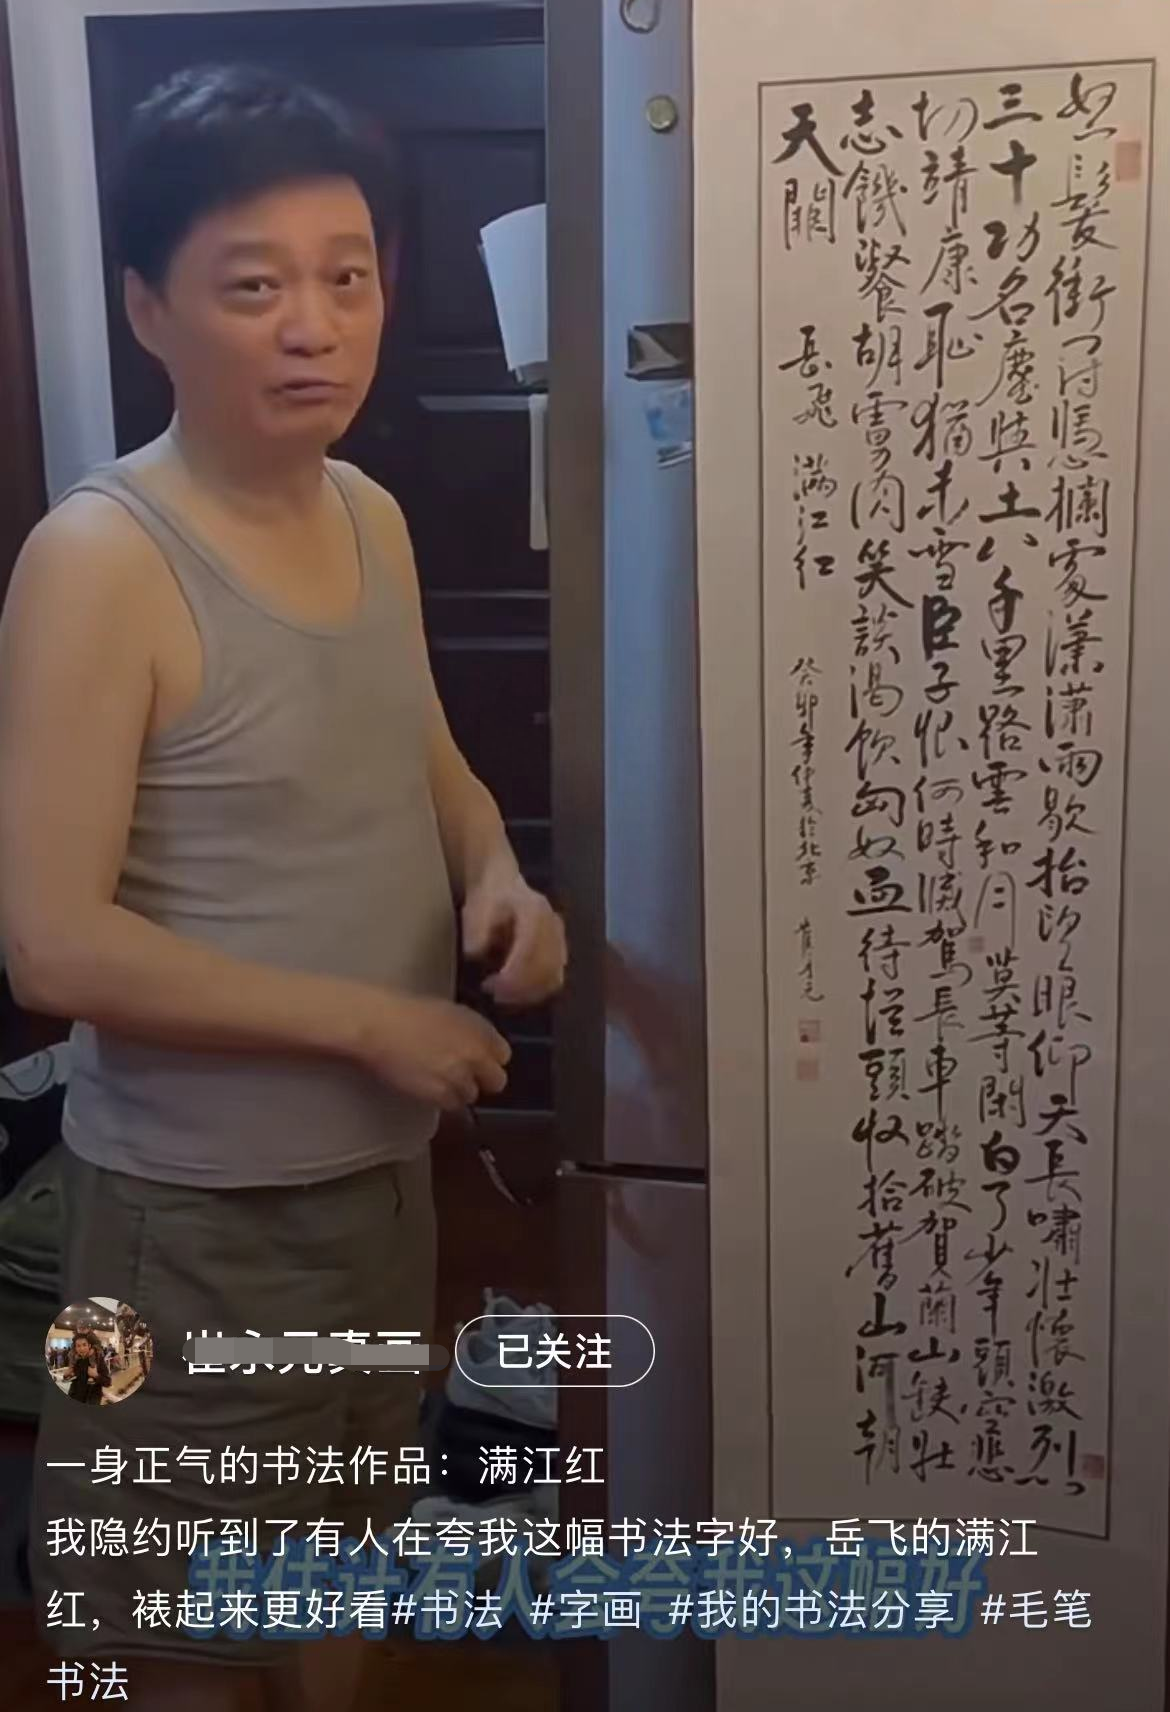 怒髮衝冠憑欄處潇潇雨歇抬望眼仰天長嘯壮懷激烈
三十功名塵與土八千里路雲和月莫等閑白了少年頭空悲
切靖康恥猶未雪臣子恨何時滅駕長車踏破賀蘭山缺壮
志饑餐胡虜肉笑談渴飲匈奴血待從頭收拾舊山河朝
天闕
岳飛 滿江红
癸卯年仲夏於北京
崔永元
已关注
一身正气的书法作品：满江红
我隐约听到了有人在夸我这幅书法字好，岳飞的满江
红，裱起来更好看#书法 #字画 #我的书法分享 #毛笔
书法
我估计有人会夸我这幅好